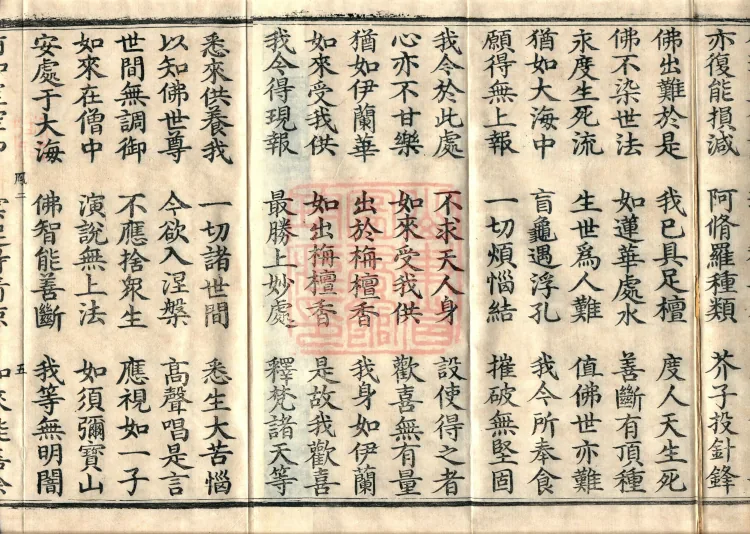 亦復能損減 阿脩羅種類 芥子投針鋒
佛出難於是 我已具足檀 度人天生死
佛不染世法 如蓮華處水 善斷有頂種
永度生死流 生世爲人難 值佛世亦難
猶如大海中 盲龜遇浮孔 我今所奉食
願得無上報 一切煩惱結 摧破無堅固
我今於此處 不求天人身 設使得之者
心亦不甘樂 如來受我供 歡喜無有量
猶如伊蘭華 出於栴檀香 我身如伊蘭
如來受我供 如出栴檀香 是故我歡喜
我今得現報 最勝上妙處 釋梵諸天等
悉來供養我 一切諸世間 悉生大苦惱
以知佛世尊 今欲入涅槃 高聲唱是言
世間無調御 不應捨衆生 應視如一子
如來在僧中 演說無上法 如須彌寶山
安處于大海 佛智能善斷 我等無明闇
鳳二 五